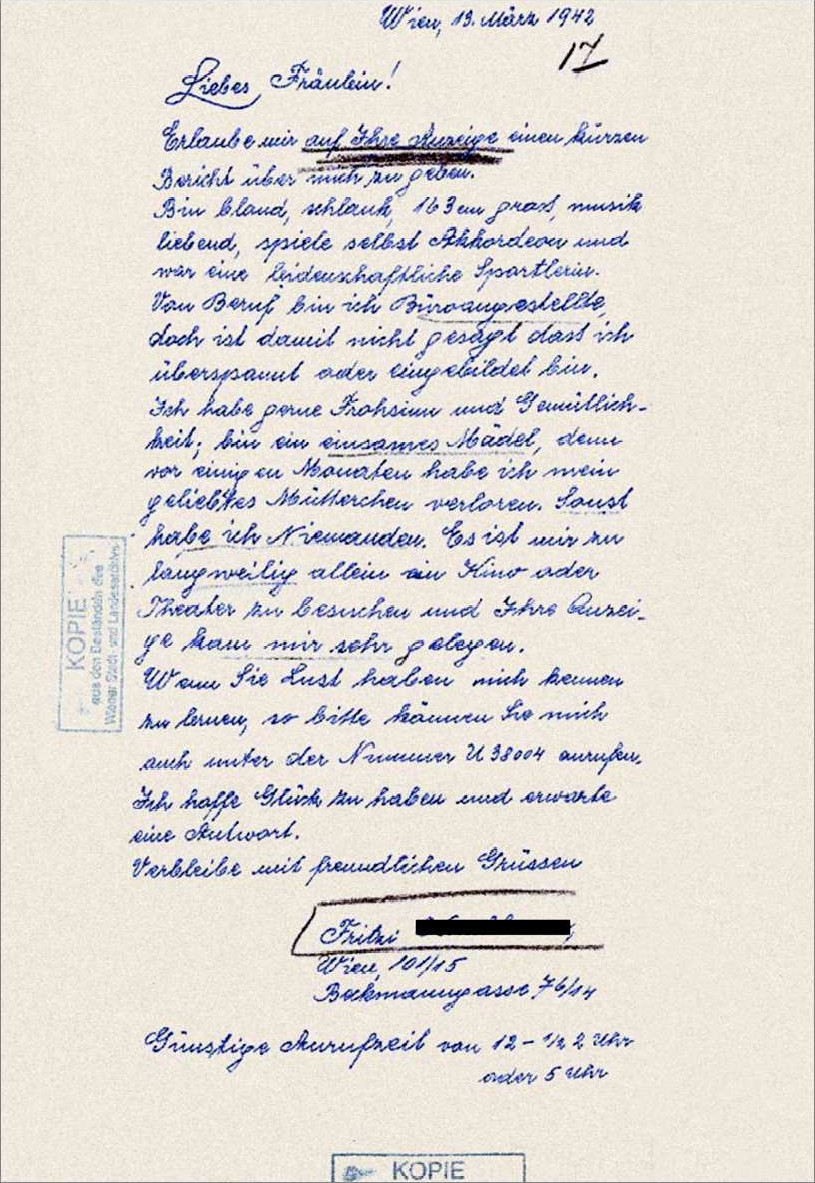 Wien, 13. März 1942
17
Liebes Fräulein!
Erlaube mir auf Ihre Anzeige einen kurzen
Bericht über mich zu geben.
Bin blond, schlank, 163 cm gross, musik
liebend, spiele selbst Akkordeon und
war eine leidenschaftliche Sportlerin.
Von Beruf bin ich Büroangestellte,
doch ist damit nicht gesagt dass ich
überspannt oder eingebildet bin.
Ich habe gerne Frohsinn und Gemütlich-
keit; bin ein einsames Mädel, denn
vor einigen Monaten habe ich mein
geliebtes Mütterchen verloren. Sonst
habe ich Niemanden. Es ist mir zu
langweilig allein ein Kino oder
Theater zu besuchen und Ihre Anzei-
ge kam mir sehr gelegen.
Wenn Sie Lust haben mich kennen
zu lernen, so bitte können Sie mich
auch unter der Nummer U 38004 anrufen.
Ich hoffe Glück zu haben und erwarte
eine Antwort.
Verbleibe mit freundlichen Grüssen
Fritzi
Wien, 101/15
Beckmanngasse 76/14
Günstige Anrufzeit von 12 - ½ 2 Uhr
oder 5 Uhr
KOPIE
aus den Beständen des
Wiener Stadt- und Landesarchivs
KOPIE